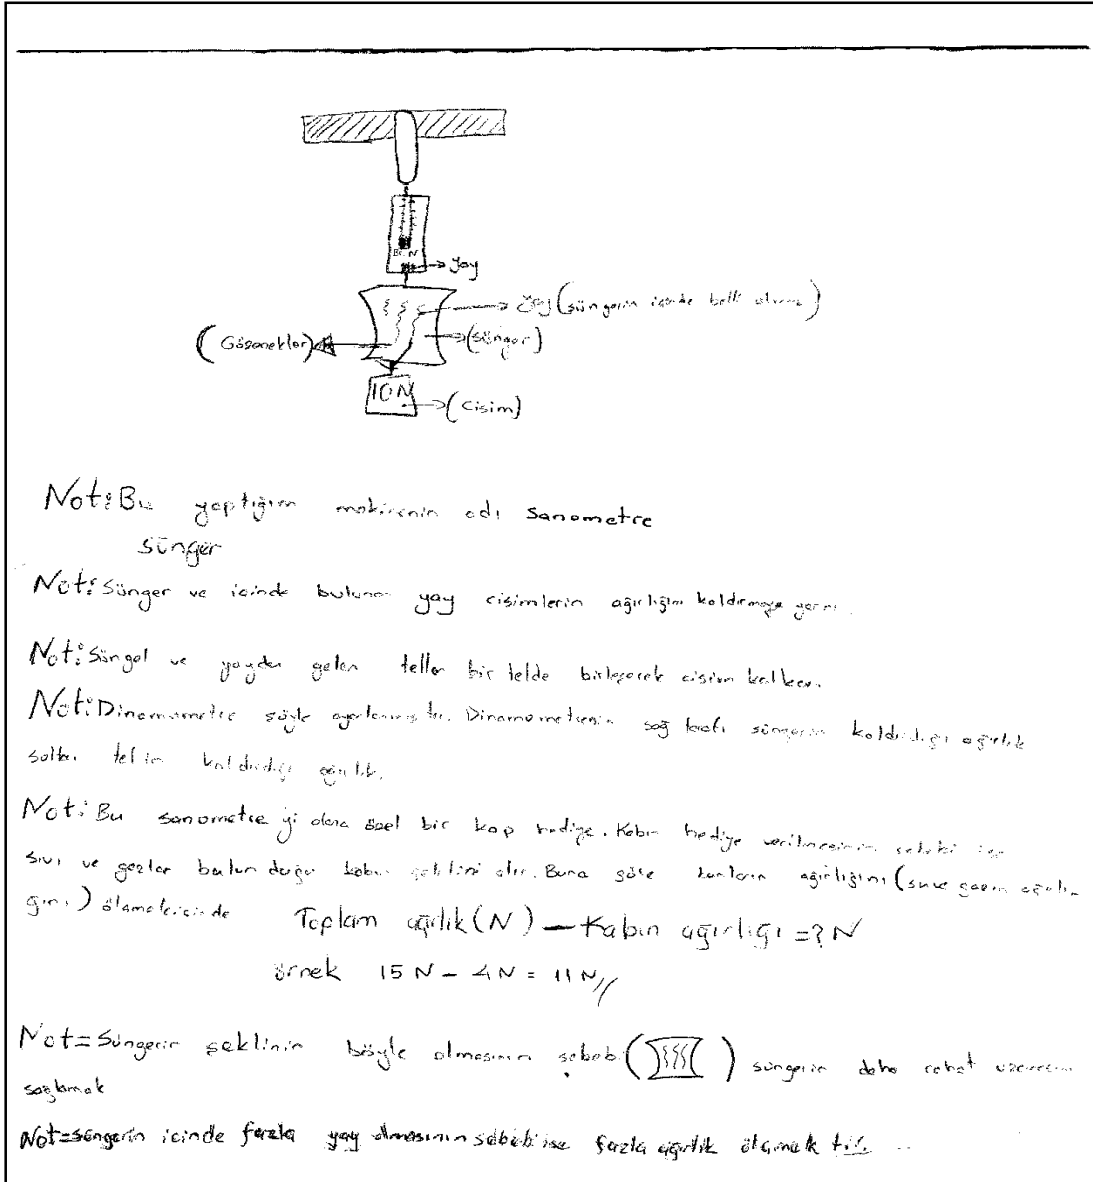 Yay
Yay (süngerin içinde belli olmaz)
(Gözenekler)
(sünger)
10 N
(Cisim)
Not: Bu yaptığım makinenin adı Sanometre
sünger
Not: Sünger ve içinde bulunan yay cisimlerin ağırlığını kaldırmaya yarar.
Not: Süngel ve yaydan gelen teller bir telde birleşerek cisim kalkar.
Not: Dinamometre şöyle ayarlanmıştır. Dinamometrenin sağ tarafı süngerin kaldırdığı ağırlık
telin kaldırdığı ağırlık.
Not: Bu sanometre yi alana özel bir kap hediye. Kabın hediye verilmesinin sebebi ise
sıvı ve gazlar bulunduğu kabın şeklini alır. Buna göre bunların ağırlığını (sıvı ve gazın ağırlı-
ğını) ölçmek için de
Toplam ağırlık (N) — Kabın ağırlığı = ? N
örnek 15 N - 4 N = 11 N//
Not = Süngerin şeklinin böyle olmasının sebebi ( ) süngerin daha rahat uzamasını
sağlamak
Not = süngerin içinde fazla yay olmasının sebebi ise fazla ağırlık ölçmek tir.